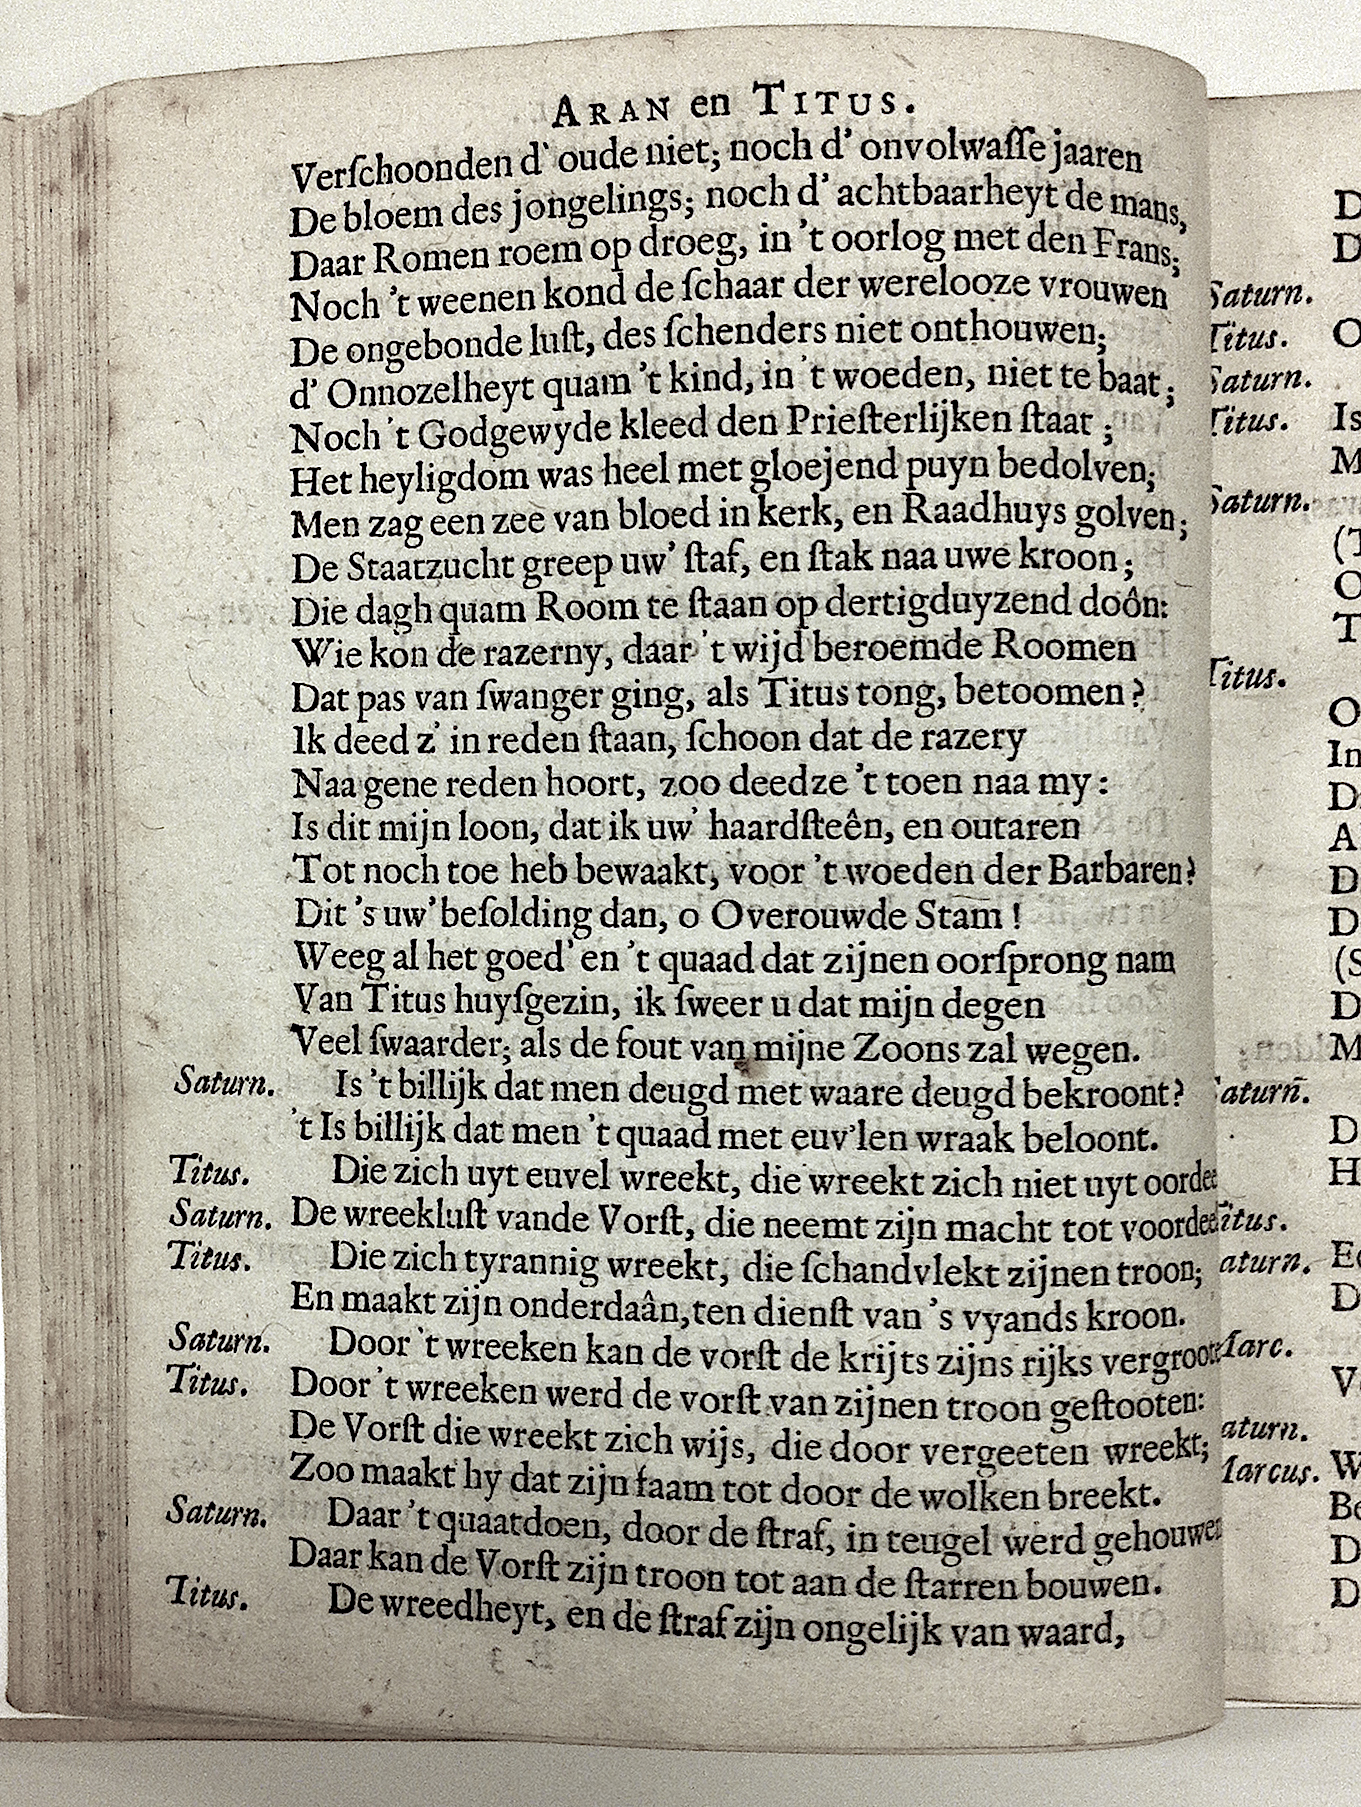 ARAN en TITUS.
Verſchoonden d' oude niet; noch d' onvolwaſſe jaaren
De bloem des jongelings; noch d' achtbaarheyt de mans,
Daar Romen roem op droeg, in 't oorlog met den Frans;
Noch 't weenen kond de ſchaar der werelooze vrouwen
De ongebonde luſt, des ſchenders niet onthouwen;
d' Onnozelheyt quam 't kind, in 't woeden, niet te baat;
Noch 't Godgewyde kleed den Prieſterlijken ſtaat;
Het heyligdom was heel met gloejend puyn bedolven;
Men zag een zee van bloed in kerk, en Raadhuys golven;
De Staatzucht greep uw' ſtaf, en ſtak naa uwe kroon;
Die dagh quam Room te ſtaan op dertigduyzend doôn:
Wie kon de razerny, daar 't wijd beroemde Roomen
Dat pas van ſwanger ging, als Titus tong, betoomen?
Ik deed z' in reden ſtaan, ſchoon dat de razery
Naa gene reden hoort, zoo deedze 't toen naa my:
Is dit mijn loon, dat ik uw' haardſteên, en outaren
Tot noch toe heb bewaakt, voor 't woeden der Barbaren?
Dit 's uw' beſolding dan, o Overouwde Stam!
Weeg al het goed' en 't quaad dat zijnen oorſprong nam
Van Titus huyſgezin, ik ſweer u dat mijn degen
Veel ſwaarder; als de fout van mijne Zoons zal wegen.
Saturn. Is 't billijk dat men deugd met waare deugd bekroont?
't Is billijk dat men 't quaad met euv'len wraak beloont.
Titus. Die zich uyt euvel wreekt, die wreekt zich niet uyt oordee
Saturn. De wreekluſt vande Vorſt, die neemt zijn macht tot voordee
Titus. Die zich tyrannig wreekt, die ſchandvlekt zijnen troon;
En maakt zijn onderdaân, ten dienſt van 's vyands kroon.
Saturn. Door 't wreeken kan de vorſt de krijts zijns rijks vergroot
Titus. Door 't wreeken werd de vorſt van zijnen troon geſtooten:
De Vorſt die wreekt zich wijs, die door vergeeten wreekt;
Zoo maakt hy dat zijn faam tot door de wolken breekt.
Saturn. Daar 't quaatdoen, door de ſtraf, in teugel werd gehouwen
Daar kan de Vorſt zijn troon tot aan de ſtarren bouwen.
Titus. De wreedheyt, en de ſtraf zijn ongelijk van waard,
D
D
Saturn.
Titus. O
Saturn.
Titus. Is
M
Saturn.
(T
O
T
Titus.
O
In
D
A
D
D
(S
D
M
aturn̄.
D
H
itus.
aturn. E
D
Marc.
V
aturn.
Marcus. W
Be
D
D